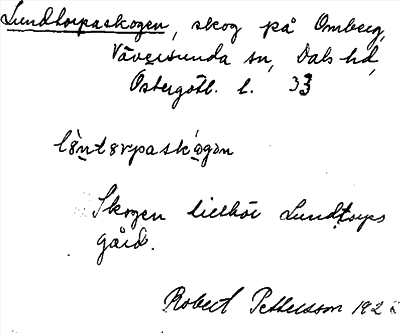 Lundtorpaskogen, skog på Omberg,
Väversunda sn, Dals hd,
Östergötl. l. 33
Skogen tillhör Lundtorps
gård.
Robert Pettersson 192